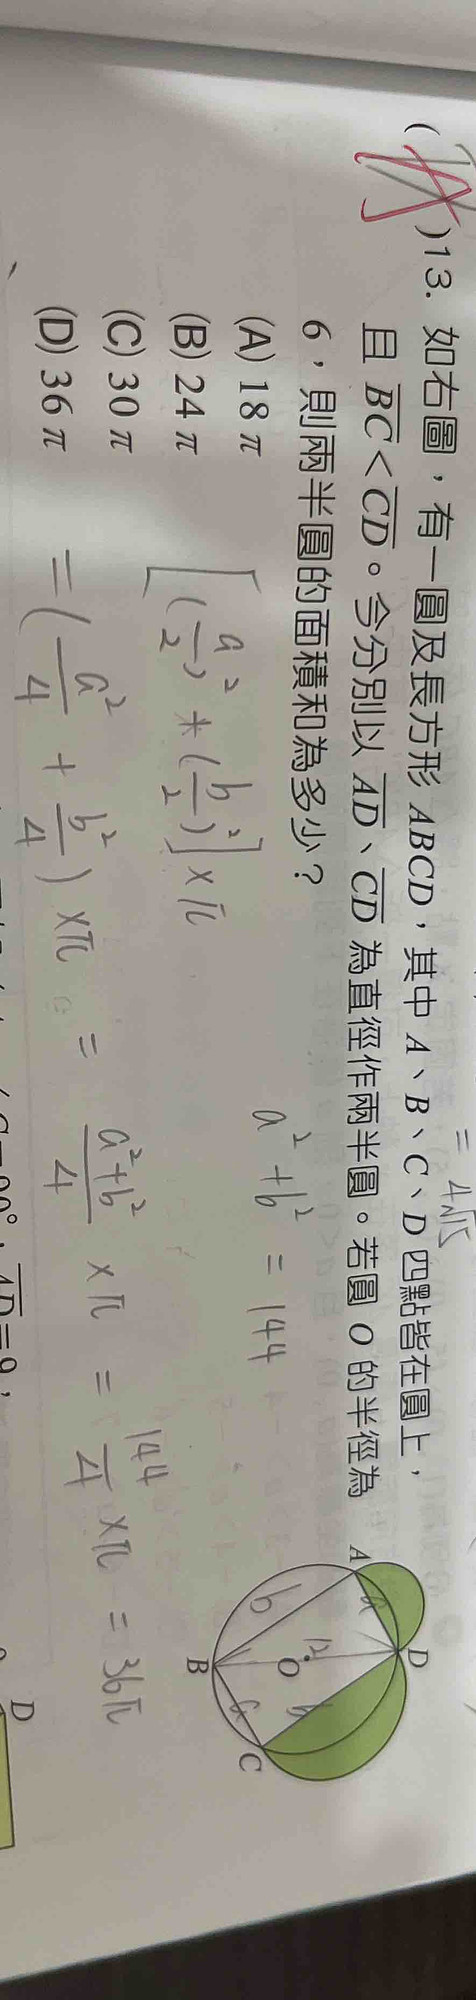 = 4√5
( A )13. 如右圖，有一圓及長方形 ABCD，其中 A、B、C、D 四點皆在圓上，
且 BC < CD。今分別以 AD、CD 為直徑作兩半圓。若圓 O 的半徑為
6，則兩半圓的面積和為多少？
(A) 18 π
(B) 24 π
(C) 30 π
(D) 36 π
a² + b² = 144
[(a/2)² + (b/2)²] × π
= (a²/4 + b²/4) × π = (a²+b²)/4 × π = 144/4 × π = 36π
A
D
B
C
O
a
b
12
b
a
C=90°，AD=9，
D